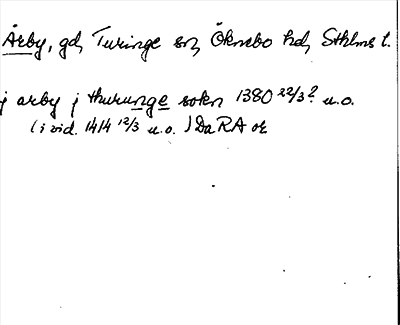 Årby, gd, Turinge sn, Öknebo hd, Sthlms l.
j arby j thurunge sokn 1380 22/3? u.o.
(i vid. 1414 12/3 u.o.) DaRA or